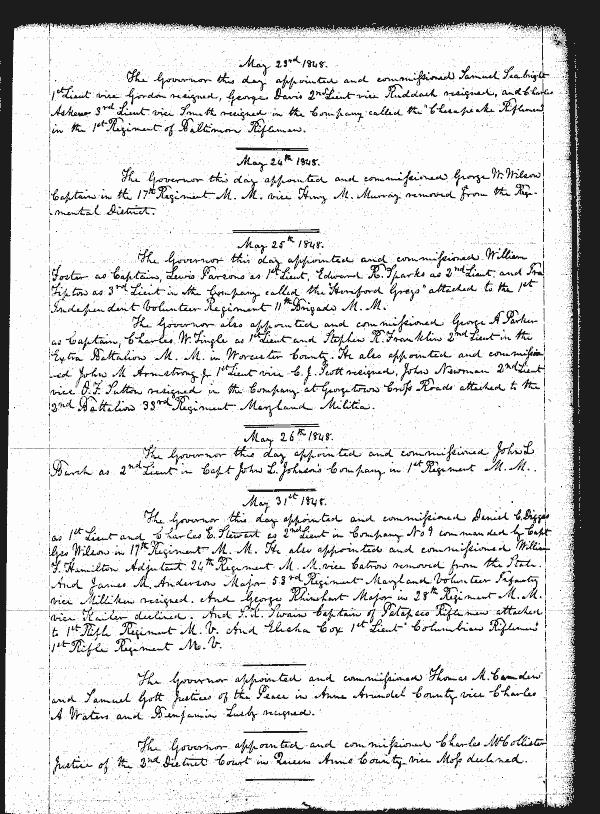 May 23rd 1848.
The Governor this day appointed and commissioned Samuel Seabright
1st Lieut vice Gordon resigned, George Davis 2nd Lieut vice Ruddach resigned, and Charles
Askew 3rd Lieut vice Smith resigned in the Company called the "Chesapeake Riflemen"
in the 1st Regiment of Baltimore Riflemen.
May 24th 1848.
The Governor this day appointed and commissioned George W. Wilson
Captain in the 17th Regiment M. M. vice Henry M. Murray removed from the Regi-
mental District.
May 25th 1848.
The Governor this day appointed and commissioned William
Foster as Captain, Lewis Parsons as 1st Lieut, Edward R. Sparks as 2nd Lieut, and Ira
Tipton as 3rd Lieut in the Company called the "Hereford Greys" attached to the 1st
Independent Volunteer Regiment 11th Brigade M. M.
The Governor also appointed and commissioned George A Parker
as Captain, Charles W. Tingle as 1st Lieut and Stephen R. Franklin 2nd Lieut in the
Extra Battalion M. M. in Worcester County. He also appointed and commission
ed John M Armstrong Jr 1st Lieut vice C. J. Scott resigned, John Newman 2nd Lieut
vice O. F. Sutton resigned in the Company at Georgetown Cross Roads attached to the
2nd Battalion 33rd Regiment Maryland Militia.
May 26th 1848.
The Governor this day appointed and commissioned John L
Burch as 2nd Lieut in Capt John L. Johnson's Company in 1st Regiment M. M.
May 31st 1848.
The Governor this day appointed and commissioned Daniel C. Digges
as 1st Lieut and Charles E. Stewart as 2nd Lieut in Company No 9 commanded by Capt
Geo Wilson in 17th Regiment M. M. He also appointed and commissioned William
F. Hamilton Adjutant 24th Regiment M. M. vice Catron removed from the State.
And James M. Anderson Major 53rd Regiment Maryland Volunteer Infantry
vice Milliken resigned. And George Rhinehart Major in 28th Regiment M. M.
vice declined. And Swain Captain of Patapsco Riflemen attached
to 1st Rifle Regiment M. V. And Elisha Cox 1st Lieut "Columbian Riflemen"
1st Rifle Regiment M. V.
The Governor appointed and commissioned Thomas M. Camden
and Samuel Gott Justices of the Peace in Anne Arundel County vice Charles
A Waters and Benjamin Lusby resigned.
The Governor appointed and commissioned Charles McCollister
Justice of the 2nd District Court in Queen Anne County vice Moss declined.